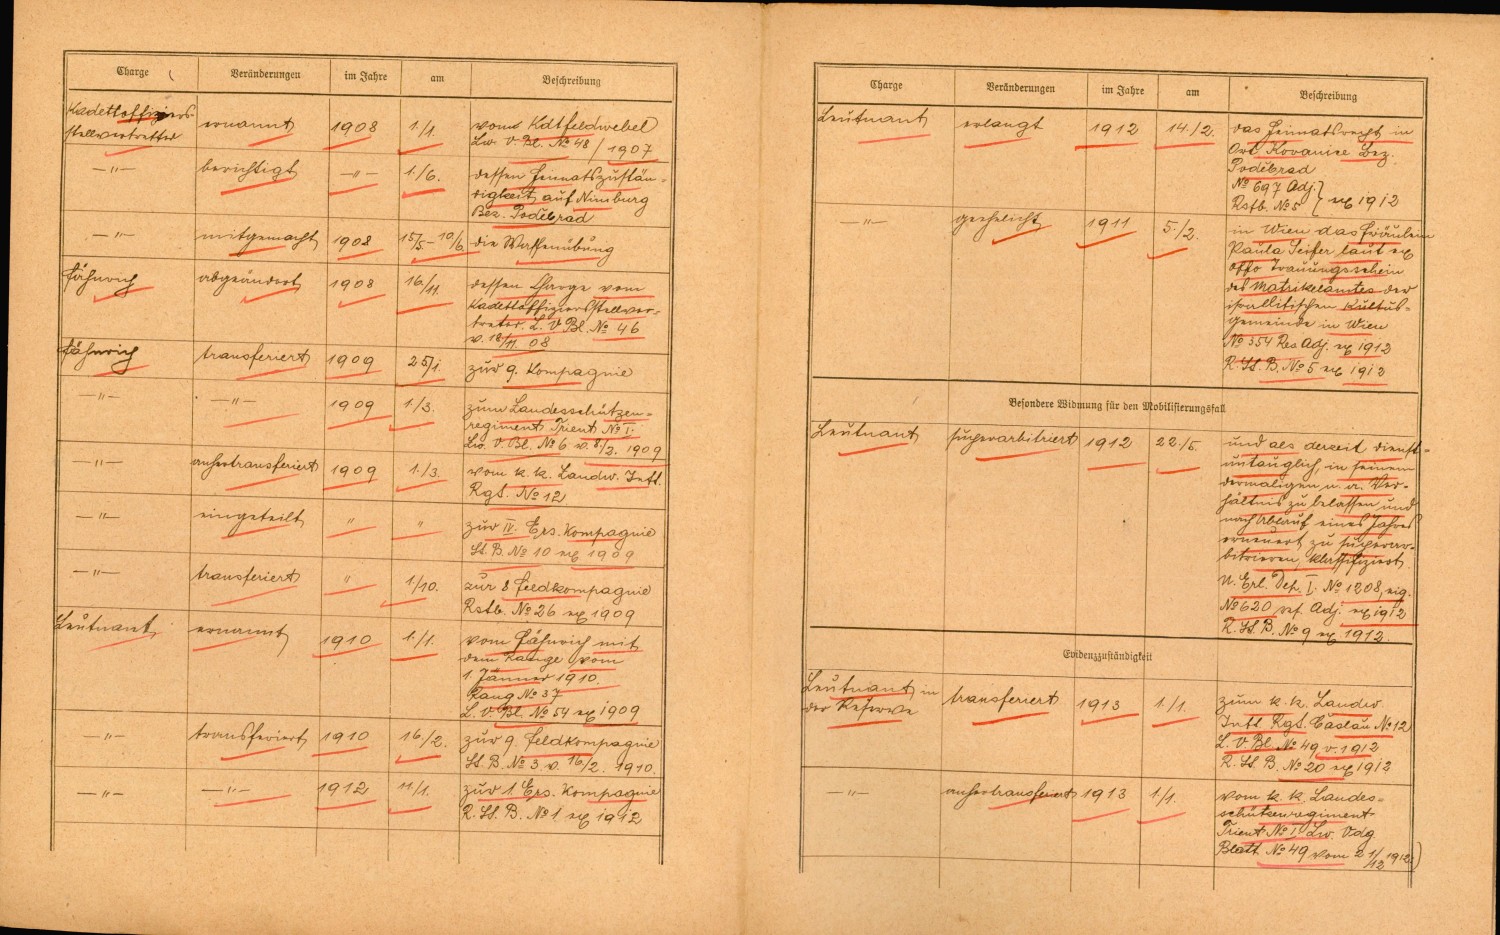 Charge Veränderungen im Jahre am Beschreibung
Kadettoffiziers- ernannt 1908 1./1. vom Kdtfeldwebel
stellvertretter Lw. V. Bl. № 48/1907
—"— berichtigt —"— 1./6. dessen Heimatszustän-
digkeit auf Nimburg
Bez. Poděbrad
—"— mitgemacht 1908 15/5–10/6 die Waffenübung
Fähnrich abgeändert 1908 16/11 dessen Charge vom
Kadettoffiziersstellver-
treter. L. V. Bl. № 46
v. 18/11. 08
Fähnrich transferiert 1909 25/1. zur 9. Kompagnie
—"— —"— 1909 1./3. zum Landesschützen-
regiment Trient № I.
Lw. V. Bl. № 6 v. 8/2. 1909
—"— anhertransferiert 1909 1./3. vom k. k. Landw. Inft.
Rgt. № 12
—"— eingeteilt " " zur IV. Ers. Kompagnie
St. B. № 10 ex 1909
—"— transferiert " 1/10. zur 8 Feldkompagnie
Rstb. № 26 ex 1909
Leutnant ernannt 1910 1./1. vom Fähnrich mit
dem Range vom
1. Jänner 1910.
Rang № 37
L. V. Bl. № 54 ex 1909
—"— transferiert 1910 16/2. zur 9. Feldkompagnie
St. B. № 3 v. 16/2. 1910.
—"— —"— 1912 11/1. zur 1 Ers. Kompagnie
R. St. B. № 1 ex 1912
Charge Veränderungen im Jahre am Beschreibung
Leutnant erlangt 1912 14./2. das Heimatsrecht in
Ort Kovanice Bez.
Poděbrad
№ 697 Adj. } ex 1912
Rstb. № 5
—"— geehelicht 1911 5./2. in Wien das Fräulein
Paula Seifer laut ex
offo Trauungsschein
des Matrikelamtes der
israelitischen Kultus-
gemeinde in Wien
№ 354 Res Adj. ex 1912
R. St. B. № 5 ex 1912
Besondere Widmung für den Mobilisierungsfall
Leutnant superarbitriert 1912 22./5. und als derzeit dienst-
untauglich, in seinem
dermaligen n. a. Ver-
hältnis zu belassen und
nach Ablauf eines Jahres
erneuert zu superar-
bitrieren, klassifiziert.
M. Erl. Dep. I. № 1208, eig.
№ 620 res. Adj. ex 1912
R. St. B. № 9 ex 1912.
Evidenzzuständigkeit
Leutnant in transferiert 1913 1./1. zum k. k. Landw
der Reserve Inft Rgt. Časlau № 12
L. V. Bl. № 49 v. 1912
R. St. B. № 20 ex 1912
—"— anhertransferiert 1913 1/1. vom k. k. Landes-
schützenregiment
Trient № I. Lw. Vdg.
Blatt № 49 vom 21/12 1912.)